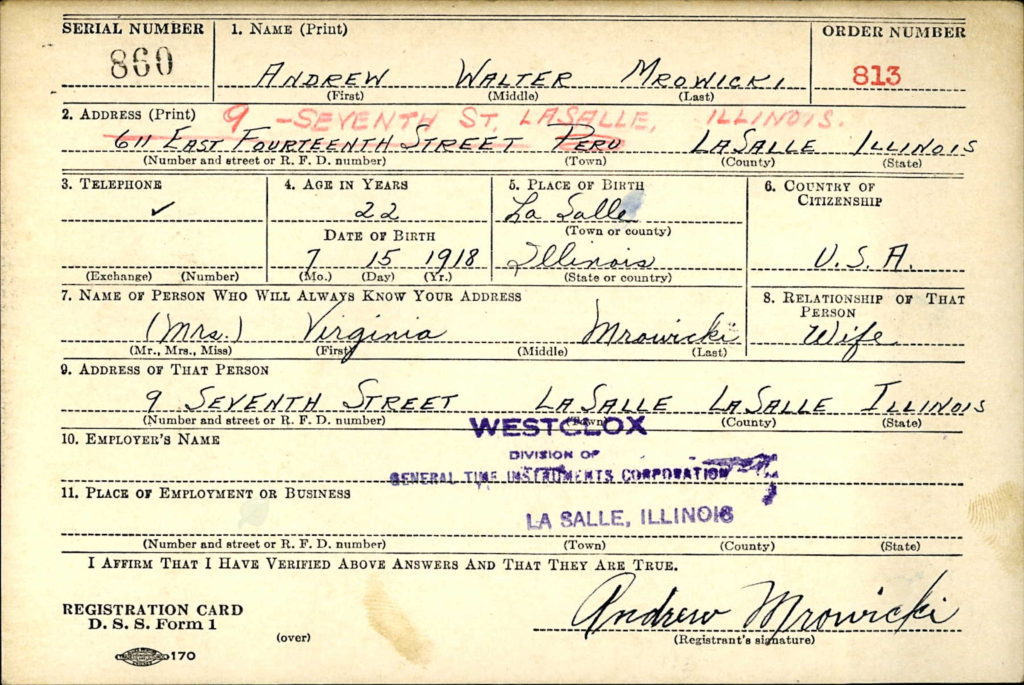 SERIAL NUMBER 1. NAME (Print) ORDER NUMBER
860 ANDREW WALTER MROWICKI 813
(First) (Middle) (Last)
2. ADDRESS (Print) 9 - SEVENTH ST, LASALLE, ILLINOIS.
611 EAST FOURTEENTH STREET PERU LASALLE ILLINOIS
(Number and street or R. F. D. number) (Town) (County) (State)
3. TELEPHONE 4. AGE IN YEARS 5. PLACE OF BIRTH 6. COUNTRY OF
CITIZENSHIP
✓ 22 La Salle
(Town or county)
DATE OF BIRTH
7 15 1918 Illinois U.S.A.
(Exchange) (Number) (Mo.) (Day) (Yr.) (State or country)
7. NAME OF PERSON WHO WILL ALWAYS KNOW YOUR ADDRESS 8. RELATIONSHIP OF THAT
PERSON
(Mrs.) Virginia Mrowicki Wife
(Mr., Mrs., Miss) (First) (Middle) (Last)
9. ADDRESS OF THAT PERSON
9 SEVENTH STREET LASALLE LASALLE ILLINOIS
(Number and street or R. F. D. number) (Town) (County) (State)
WESTCLOX
10. EMPLOYER'S NAME
DIVISION OF
GENERAL TIME INSTRUMENTS CORPORATION
11. PLACE OF EMPLOYMENT OR BUSINESS
LA SALLE, ILLINOIS
(Number and street or R. F. D. number) (Town) (County) (State)
I AFFIRM THAT I HAVE VERIFIED ABOVE ANSWERS AND THAT THEY ARE TRUE.
Andrew Mrowicki
REGISTRATION CARD
D. S. S. Form 1
(over) (Registrant's signature)
170